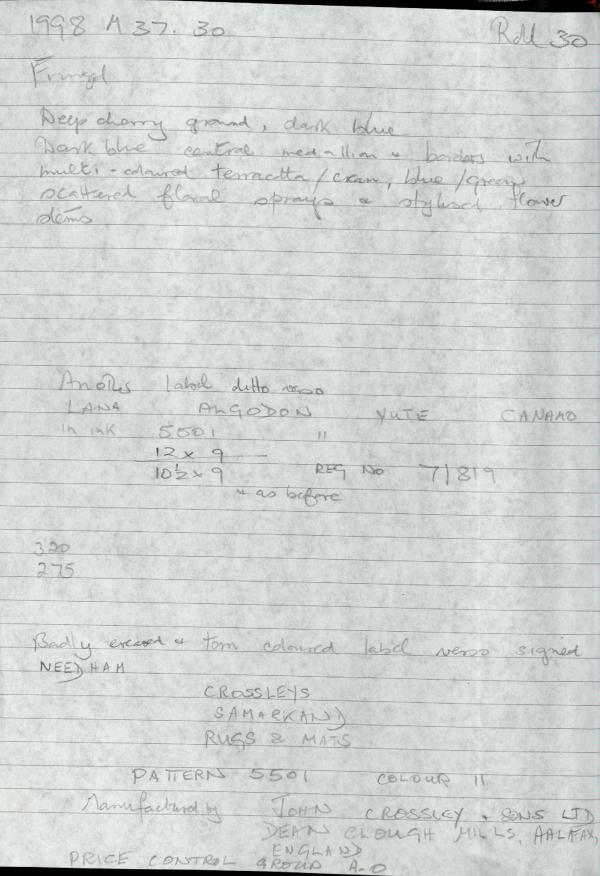 1998 M 37. 30
RdU 30
Fringed
Deep cherry ground, dark blue
Dark blue central medallion & borders with
multi-coloured terracotta / cream, blue / green
scattered floral sprays & stylised flower
stems
Another label ditto verso
LANA ALGODON YUTE CANAMO
in ink 5501 11
12 x 9 —
10½ x 9 REG No 71819
& as before
320
275
Badly creased & torn coloured label verso signed
NEEDHAM
CROSSLEYS
SAMARKAND
RUGS & MATS
PATTERN 5501 COLOUR 11
Manufactured by JOHN CROSSLEY & SONS LTD
DEAN CLOUGH MILLS, HALIFAX,
ENGLAND
PRICE CONTROL GROUP A.O